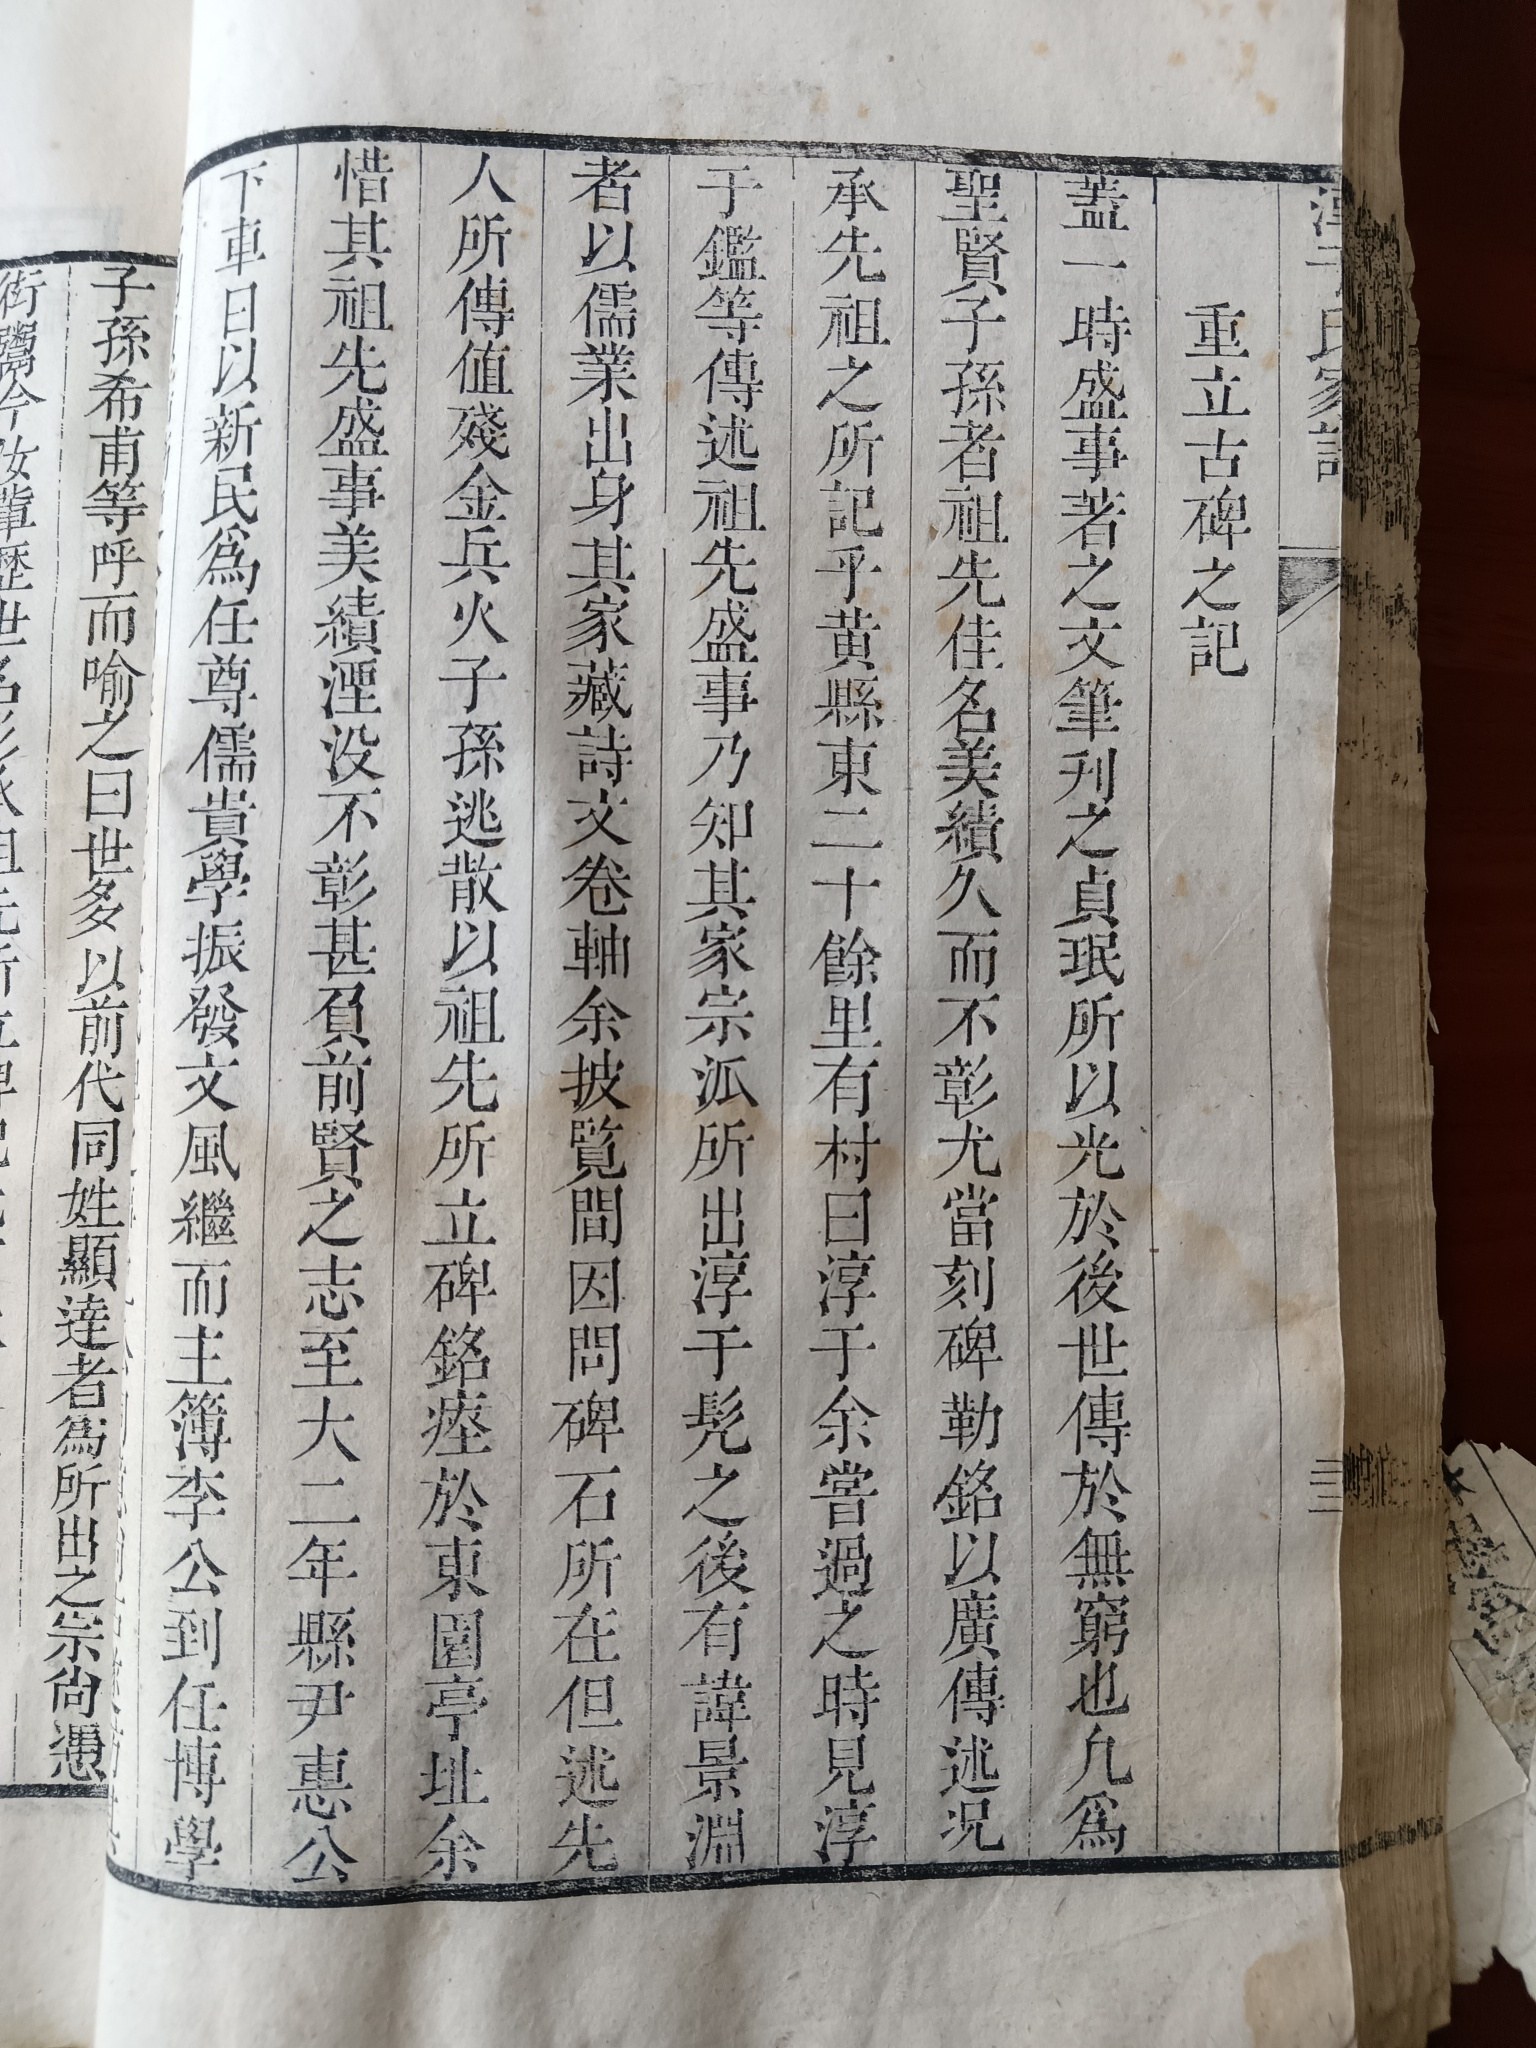 重立古碑之記
蓋一時盛事著之文筆刋之貞珉所以光於後世傳於無窮也凢爲
聖賢子孫者祖先佳名美績久而不彰尤當刻碑勒銘以廣傳述况
承先祖之所記乎黄縣東二十餘里有村曰淳于余嘗過之時見淳
于鑑等傳述祖先盛事乃知其家宗派所出淳于髠之後有諱景淵
者以儒業出身其家藏詩文卷軸余披覧間因問碑石所在但述先
人所傳值殘金兵火子孫逃散以祖先所立碑銘瘞於東園亭址余
惜其祖先盛事美績湮没不彰甚負前賢之志至大二年縣尹惠公
下車日以新民爲任尊儒貴學振發文風繼而主簿李公到任博學
子孫希甫等呼而喻之曰世多以前代同姓顯達者爲所出之宗尙憑